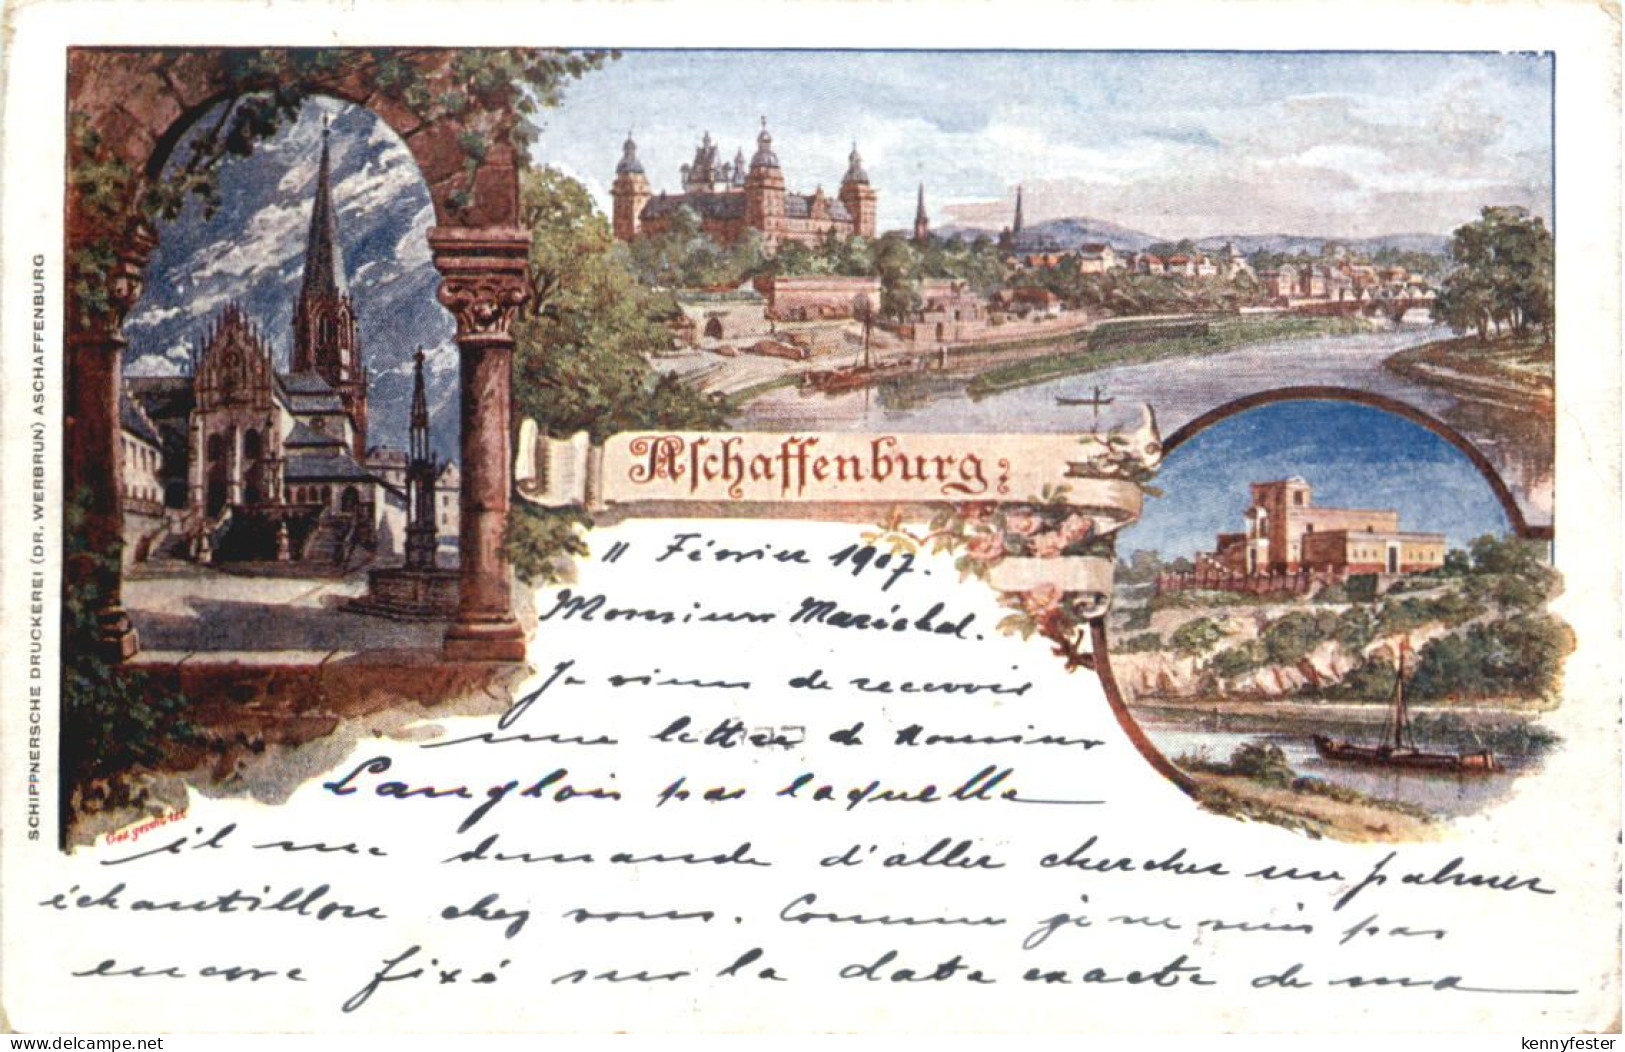 SCHIPPNERSCHE DRUCKEREI (DR. WERBRUN) ASCHAFFENBURG
Aschaffenburg
11 Février 1907.
Monsieur Maréchal.
Je viens de recevoir
une lettre de Monsieur
Langlois par laquelle
il me demande d'aller chercher un palmer
échantillon chez vous. Comme je ne suis pas
encore fixé sur la date exacte de ma
Ges. geschützt
www.delcampe.net
kennyfester